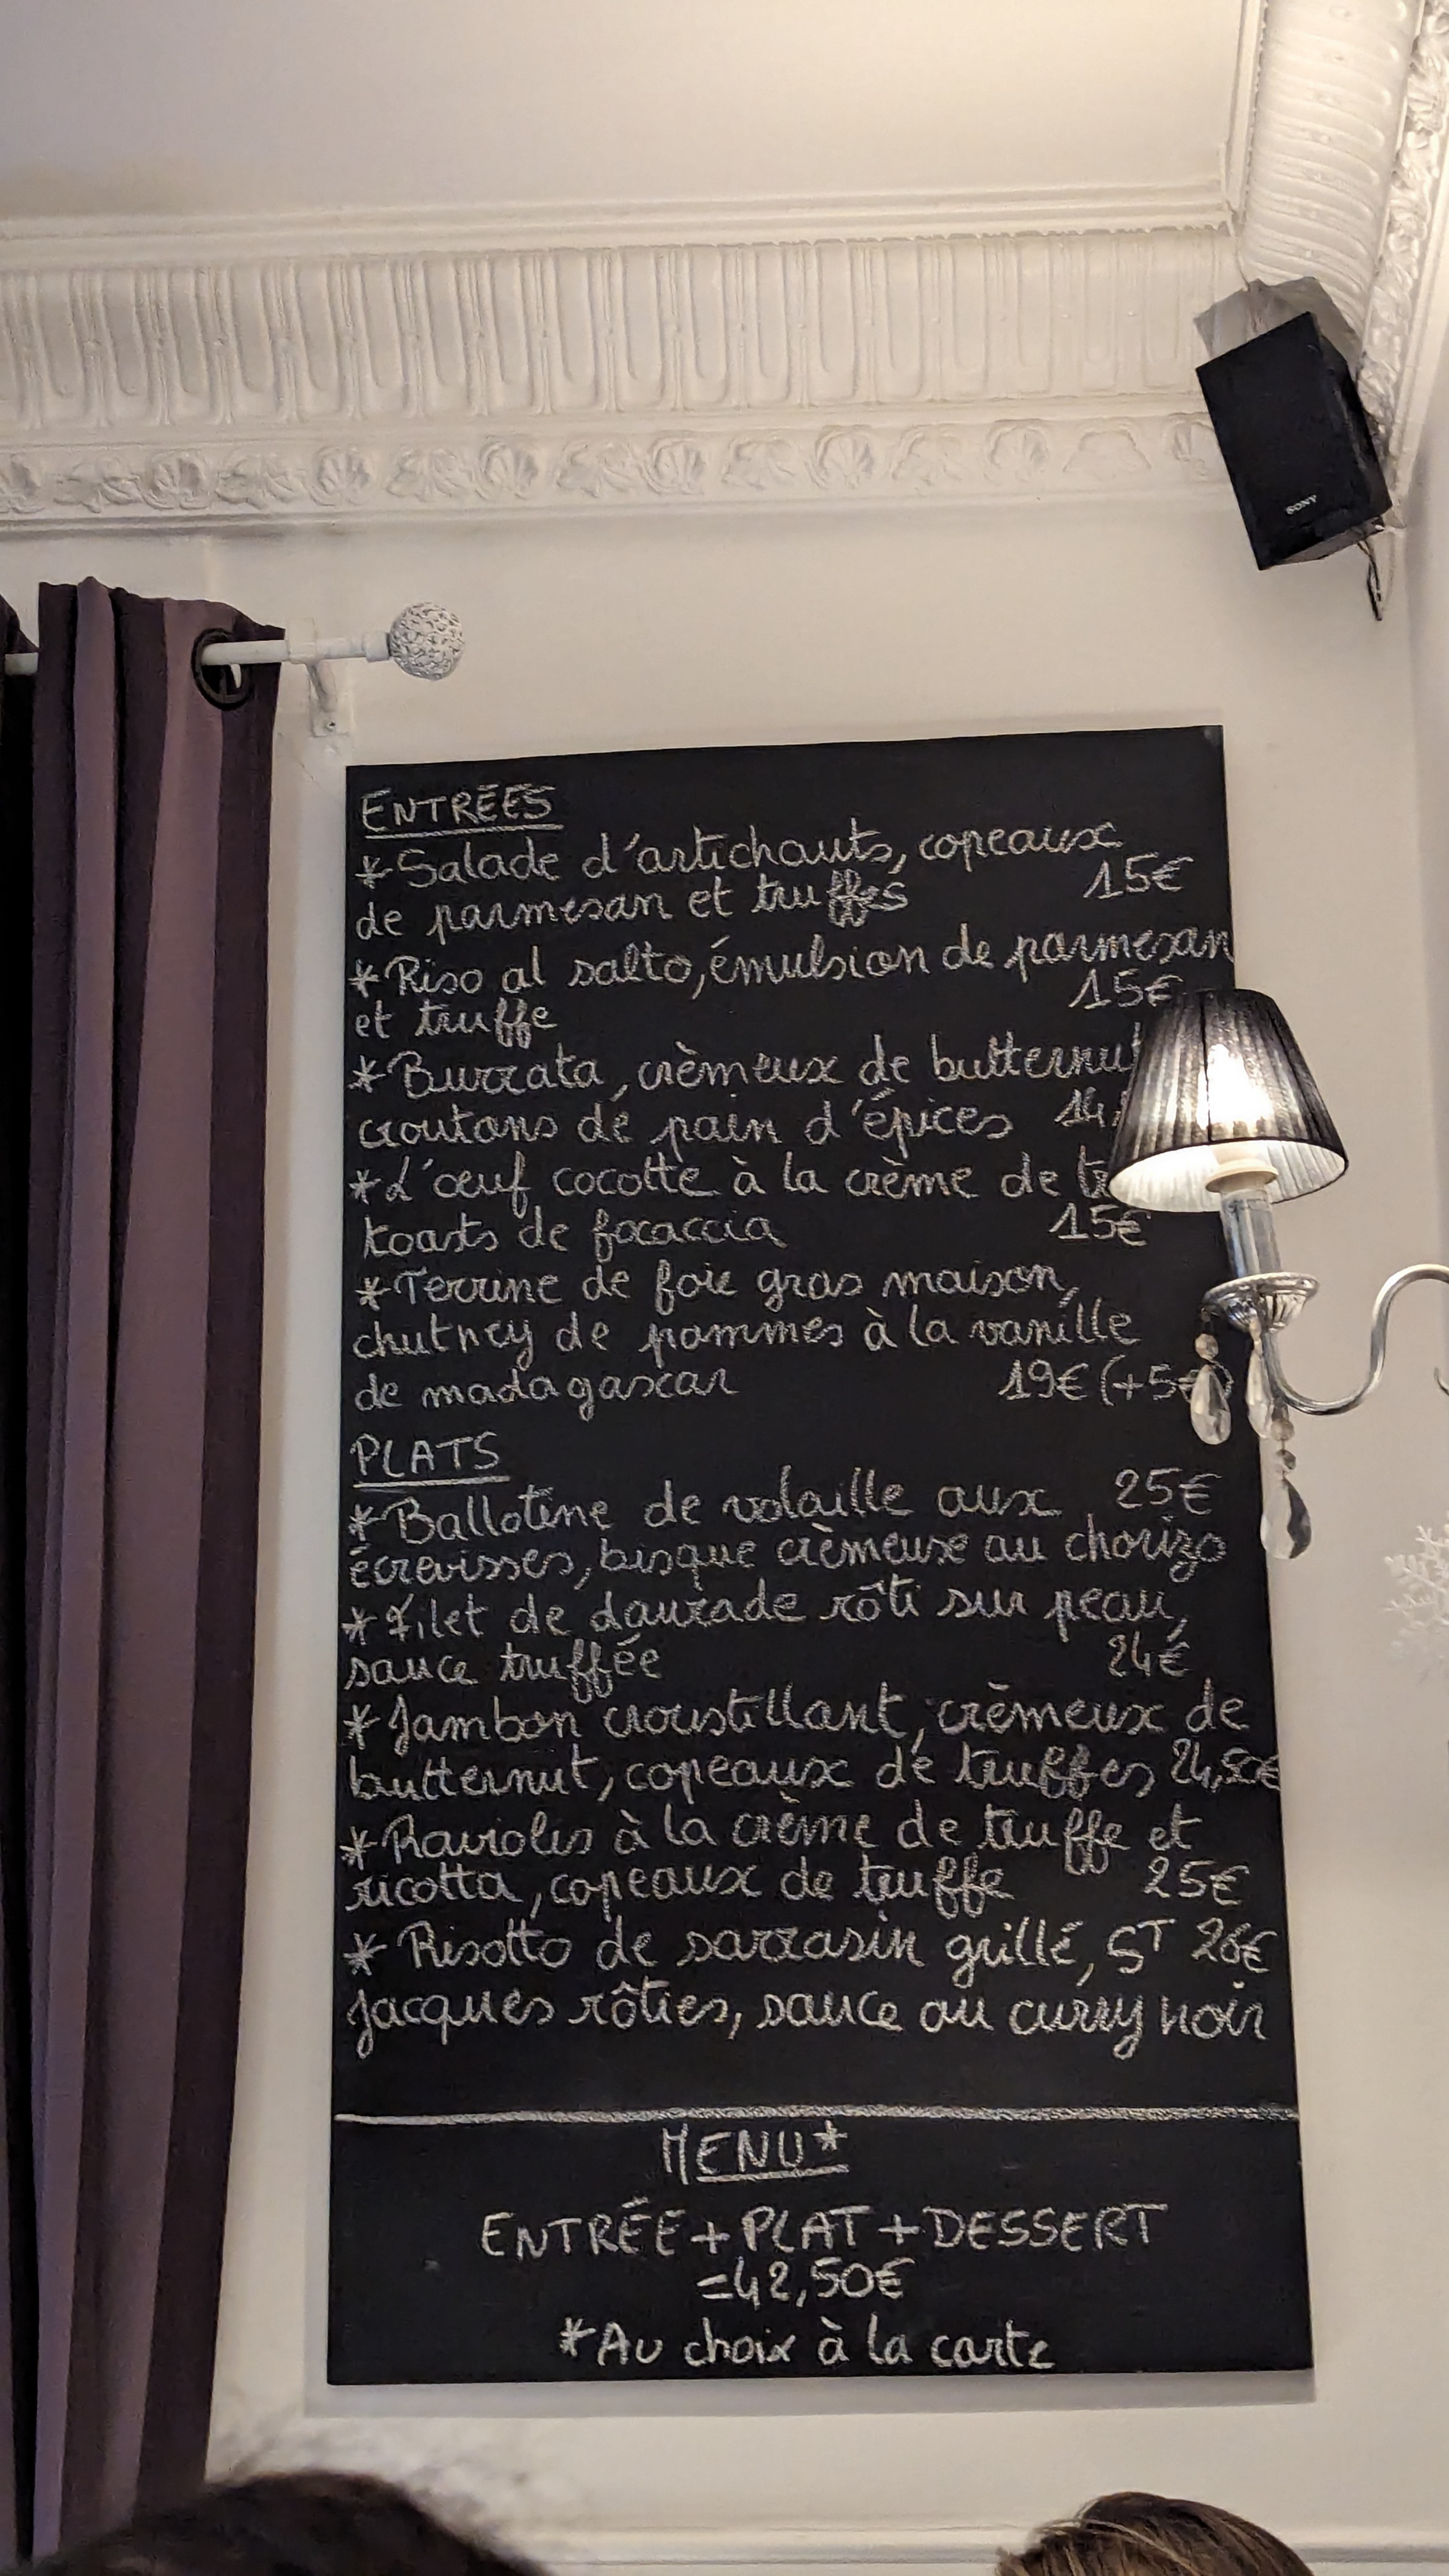 SONY
ENTRÉES
*Salade d'artichauts, copeaux
de parmesan et truffes 15€
*Riso al salto, émulsion de parmesan
et truffe 15€
*Burrata, crèmeux de
croutons de pain d'épices
*L'œuf cocotte à la crème de
toasts de focaccia 15€
*Terrine de foie gras maison,
chutney de pommes à la vanille
de madagascar 19€ (+5€)
PLATS
*Ballotine de volaille aux 25€
écrevisses, bisque crèmeuse au chorizo
*Filet de daurade rôti sur peau,
sauce truffée 24€
*Jambon croustillant, crèmeux de
butternut, copeaux de truffes 24,50€
*Ravioles à la crème de truffe et
ricotta, copeaux de truffe 25€
*Risotto de sarrasin grillé, ST 26€
Jacques rôties, sauce au curry noir
MENU*
ENTRÉE+PLAT+DESSERT
=42,50€
*Au choix à la carte